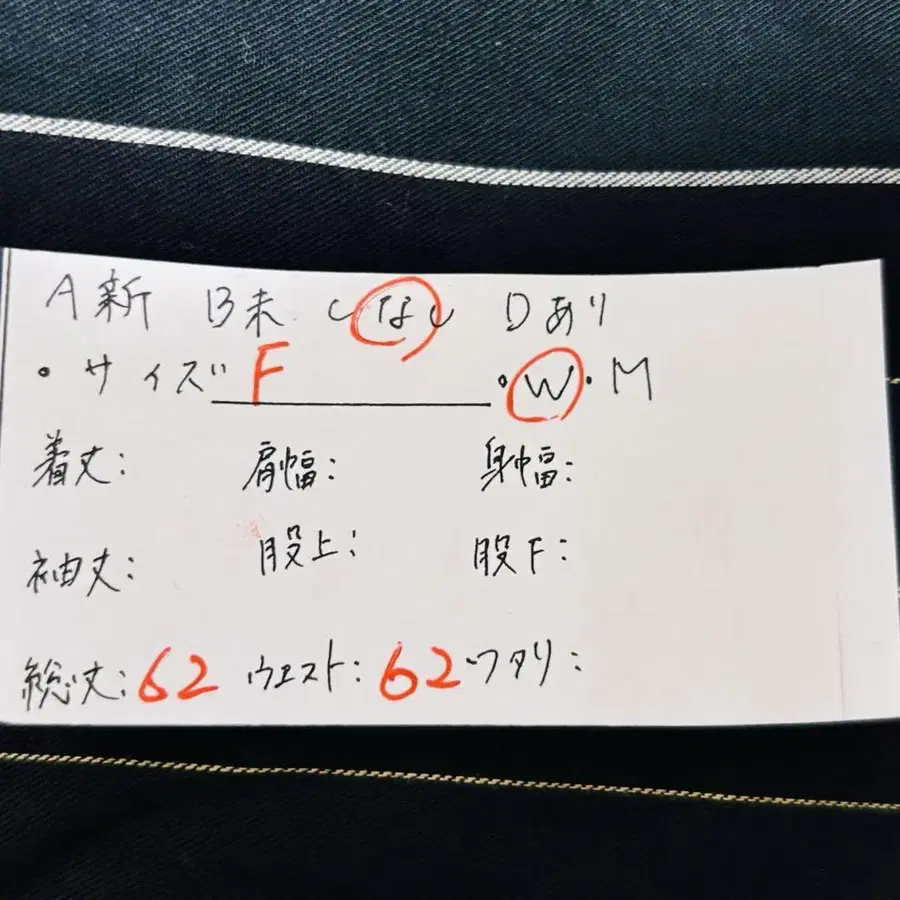 A新 B未 Cなし Dあり
・サイズ F ・W・M
着丈: 肩幅: 身幅:
袖丈: 股上: 股下:
総丈:62 ウエスト:62 ワタリ: